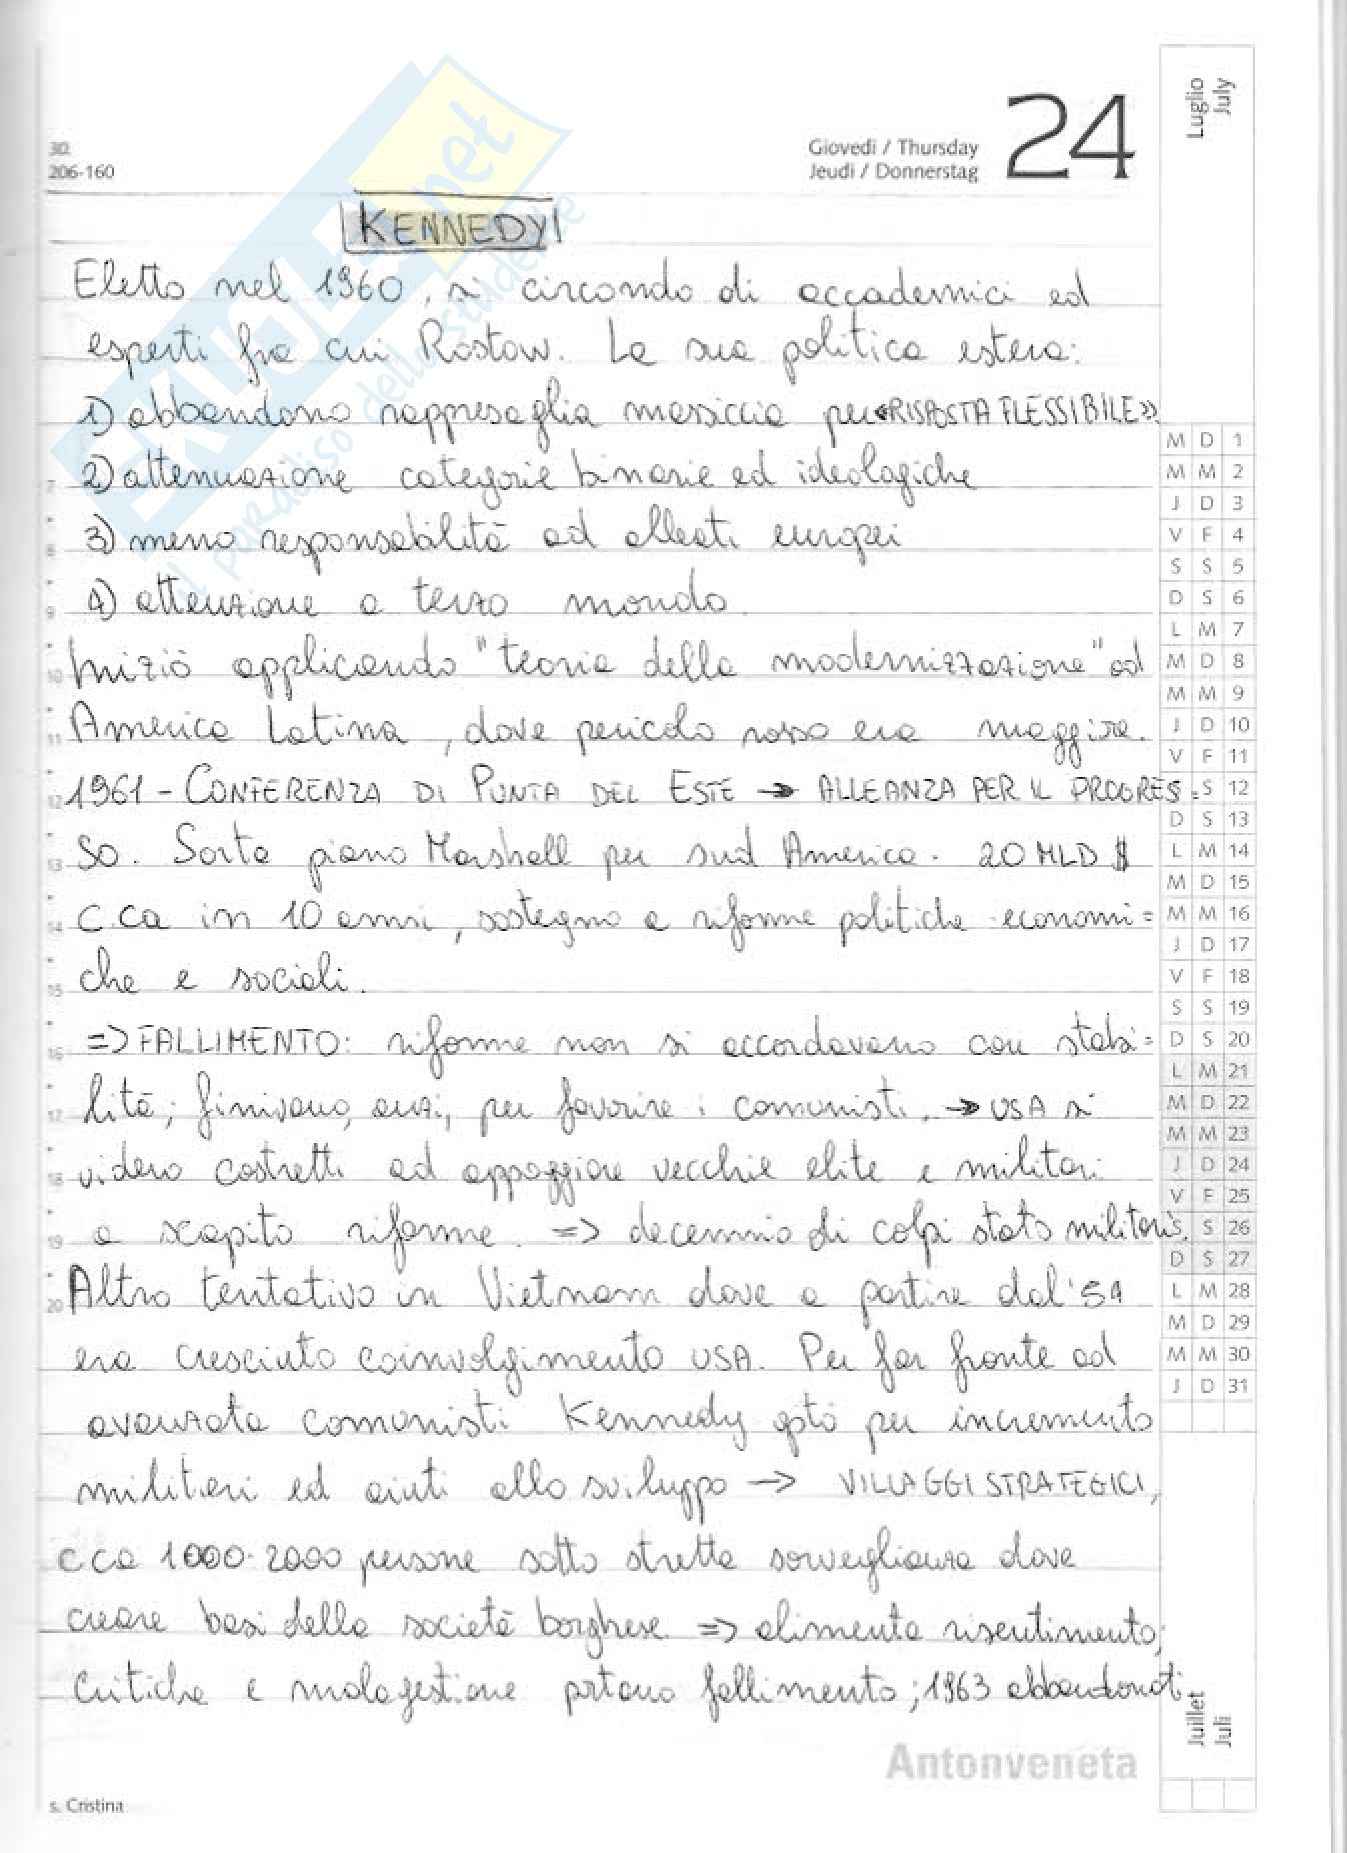 30.
206-160
Giovedì / Thursday
Jeudi / Donnerstag
24
Luglio
July
SKUOLA.net
il paradiso dello studente
KENNEDY
Eletto nel 1960, si circondo di accademici ed
esperti fra cui Rostow. La sua politica estera:
1) abbandono rappresaglia massiccia per «RISPOSTA FLESSIBILE»
2) attenuazione categorie binarie ed ideologiche
3) meno responsabilità ad alleati europei
4) attenzione a terzo mondo.
Iniziò applicando "teoria della modernizzazione" ad
America Latina, dove pericolo rosso era maggiore.
1961 - CONFERENZA DI PUNTA DEL ESTE → ALLEANZA PER IL PROGRES=
SO. Sorta piano Marshall per sud America. 20 MLD $
C.ca in 10 anni, sostegno a riforme politiche economi=
che e sociali.
=> FALLIMENTO: riforme non si accordavano con stabi=
lità; finivano, anzi, per favorire i comunisti. → USA si
videro costretti ad appoggiare vecchie elite e militari
a scapito riforme. => decennio di colpi stato militari.
Altro tentativo in Vietnam dove a partire dal '54
era cresciuto coinvolgimento USA. Per far fronte ad
avanzata comunisti Kennedy optò per incremento
militari ed aiuti allo sviluppo → VILLAGGI STRATEGICI,
c.ca 1000-2000 persone sotto stretta sorveglianza dove
creare basi della società borghese => alimenta risentimento;
Critiche e malagestione portano fallimento; 1963 abbandonati
M D 1
M M 2
J D 3
V F 4
S S 5
D S 6
L M 7
M D 8
M M 9
J D 10
V F 11
S 12
D S 13
L M 14
M D 15
M M 16
J D 17
V F 18
S S 19
D S 20
L M 21
M D 22
M M 23
J D 24
V F 25
S S 26
D S 27
L M 28
M D 29
M M 30
J D 31
7
8
9
10
11
12
13
14
15
16
17
18
19
20
Juillet
Juli
Antonveneta
s. Cristina